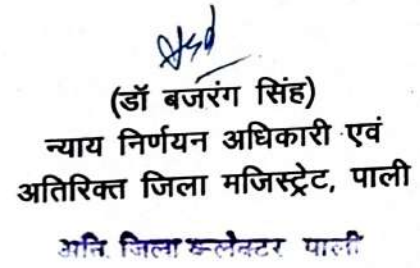 (डॉ बजरंग सिंह)
न्याय निर्णयन अधिकारी एवं
अतिरिक्त जिला मजिस्ट्रेट, पाली
अति. जिला कलेक्टर पाली